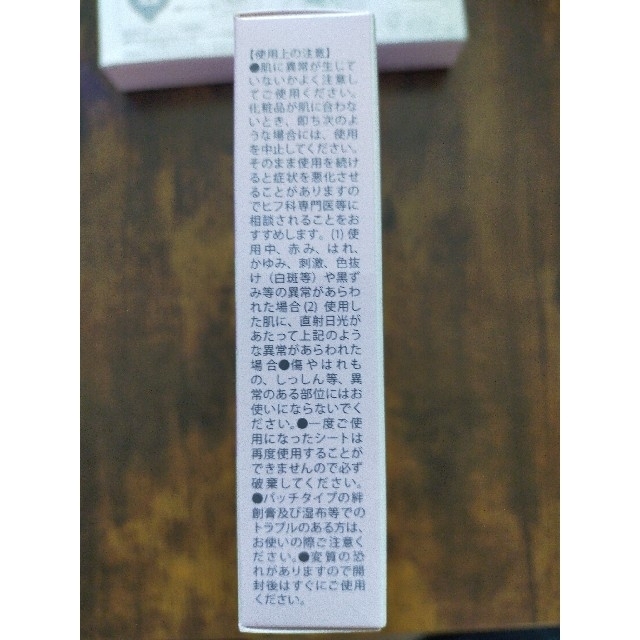 【使用上の注意】
●肌に異常が生じて
いないかよく注意し
てご使用ください。
化粧品が肌に合わな
いとき、即ち次のよ
うな場合には、使用
を中止してください。
そのまま使用を続け
ると症状を悪化させ
ることがありますの
でヒフ科専門医等に
相談されることをお
すすめします。(1) 使
用中、赤み、はれ、
かゆみ、刺激、色抜
け（白斑等）や黒ず
み等の異常があらわ
れた場合 (2) 使用し
た肌に、直射日光が
あたって上記のよう
な異常があらわれた
場合●傷やはれも
の、しっしん等、異
常のある部位にはお
使いにならないでく
ださい。●一度ご使
用になったシートは
再度使用することが
できませんので必ず
破棄してください。
●パッチタイプの絆
創膏及び湿布等での
トラブルのある方は、
お使いの際ご注意く
ださい。●変質の恐
れがありますので開
封後はすぐにご使用
ください。